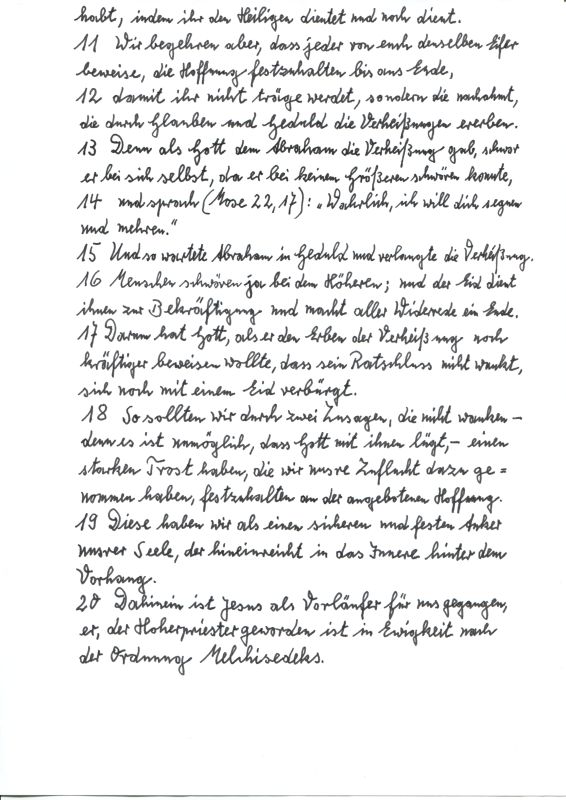 habt, indem ihr den Heiligen dientet und noch dient.
11 Wir begehren aber, dass jeder von euch denselben Eifer
beweise, die Hoffnung festzuhalten bis ans Ende,
12 damit ihr nicht träge werdet, sondern die nachahmt,
die durch Glauben und Geduld die Verheißungen ererben.
13 Denn als Gott dem Abraham die Verheißung gab, schwor
er bei sich selbst, da er bei keinem Größeren schwören konnte,
14 und sprach (Mose 22,17): „Wahrlich, ich will dich segnen
und mehren.“
15 Und so wartete Abraham in Geduld und verlangte die Verheißung.
16 Menschen schwören ja bei dem Höheren; und der Eid dient
ihnen zur Bekräftigung und macht aller Widerrede ein Ende.
17 Darum hat Gott, als er den Erben der Verheißung noch
kräftiger beweisen wollte, dass sein Ratschluss nicht wankt,
sich noch mit einem Eid verbürgt.
18 So sollten wir durch zwei Zusagen, die nicht wanken –
denn es ist unmöglich, dass Gott mit ihnen lügt, – einen
starken Trost haben, die wir unsre Zuflucht dazu ge=
nommen haben, festzuhalten an der angebotenen Hoffnung.
19 Diese haben wir als einen sicheren und festen Anker
unsrer Seele, der hineinreicht in das Innere hinter dem
Vorhang.
20 Dahinein ist Jesus als Vorläufer für uns gegangen,
er, der Hoherpriester geworden ist in Ewigkeit nach
der Ordnung Melchisedeks.